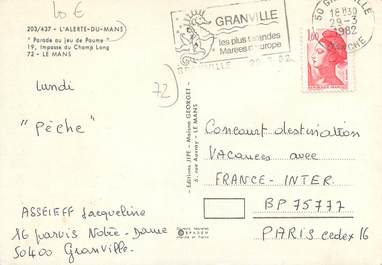 10 €
203/437 - L'ALERTE-DU-MANS
" Parade au jeu de Paume "
19, Impasse du Champ Long
72 - LE MANS
72
GRANVILLE
les plus grandes
Marées d'Europe
50 GRANVILLE
18H30
29-3
1982
MANCHE
1,60
lundi
"pêche"
- Editions JIPE - Maison GEORGET -
6, rue Auvray - LE MANS
Concourt destination
Vacances avec
FRANCE-INTER.
BP 75777
PARIS cedex 16
ASSEIEFF Jacqueline
16 parvis Notre-Dame
50400 Granville.